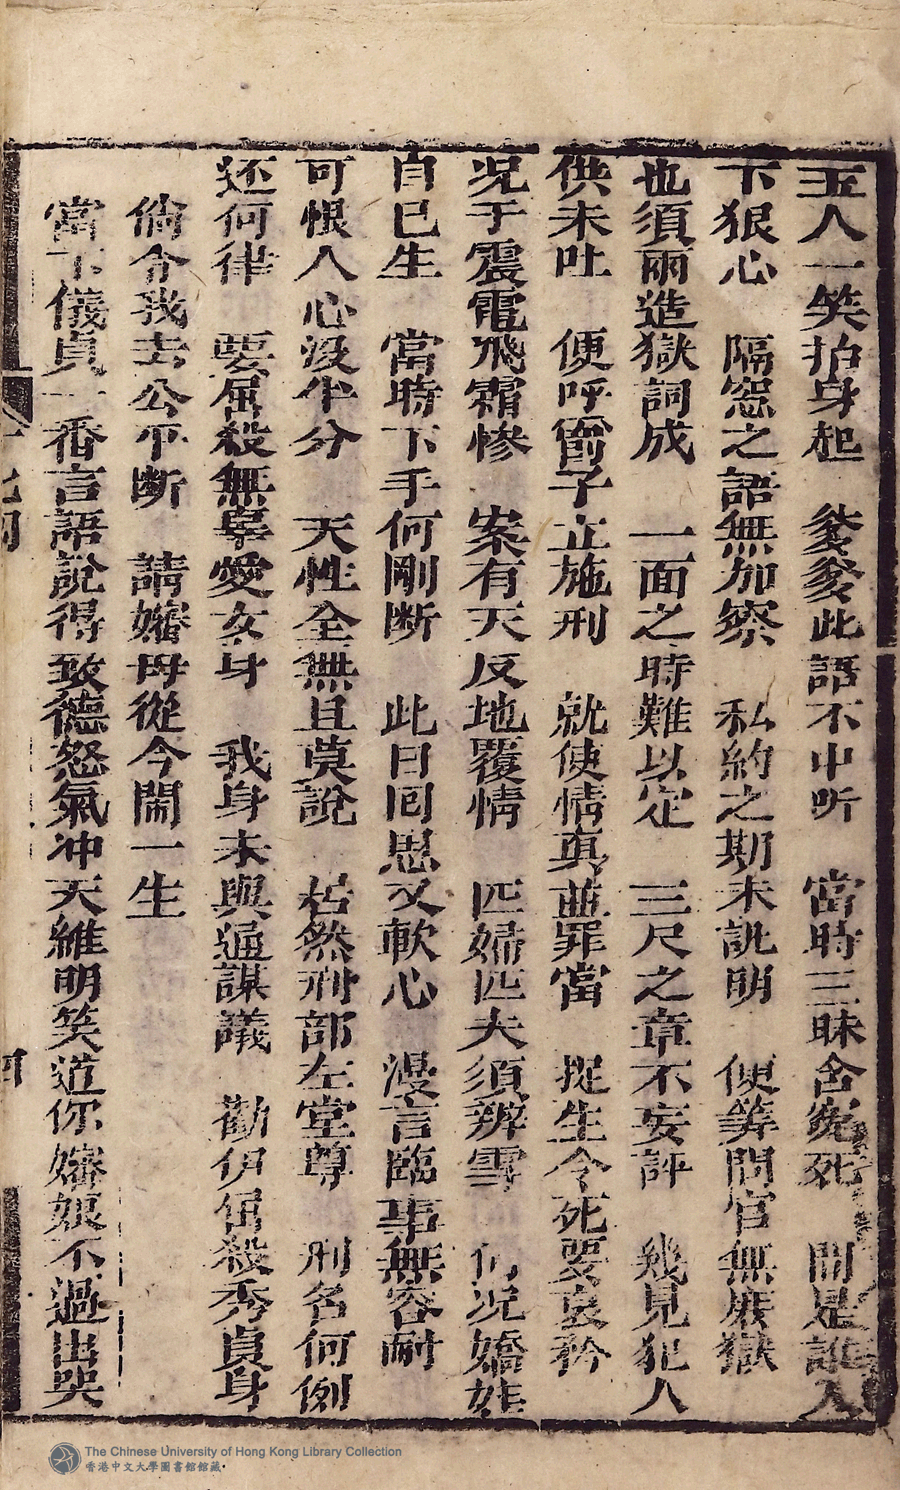 玉人一笑抬身起　爹爹此語不中听　當時三昧含寃死　問是誰人
下狠心　隔窓之語無加察　私約之期未説明　便筭問官無厐獄
也須兩造獄詞成　一面之時難以定　三尺之章不妄評　幾見犯人
供未吐　便呼劊子立施刑　就使情真並罪當　捉生令死要哀矜
况于震電飛霜慘　案有天反地覆情　匹婦匹夫須辨雪　何况嬌姓
自已生　當時下手何剛断　此日囘思又軟心　漫言臨事無容耐
可恨人心没半分　天性全無且莫說　居然刑部左堂尊　刑名何例
还何律　要屈殺無辜愛女身　我身未與通謀議　勸伊屈殺秀貞身
倘令我去公平断　請嬸母從今閙一生
當下儀貞一番言語說得致德怒氣冲天維明笑道你嬸娘不過出哭
四
The Chinese University of Hong Kong Library Collection
香港中文大學圖書館館藏